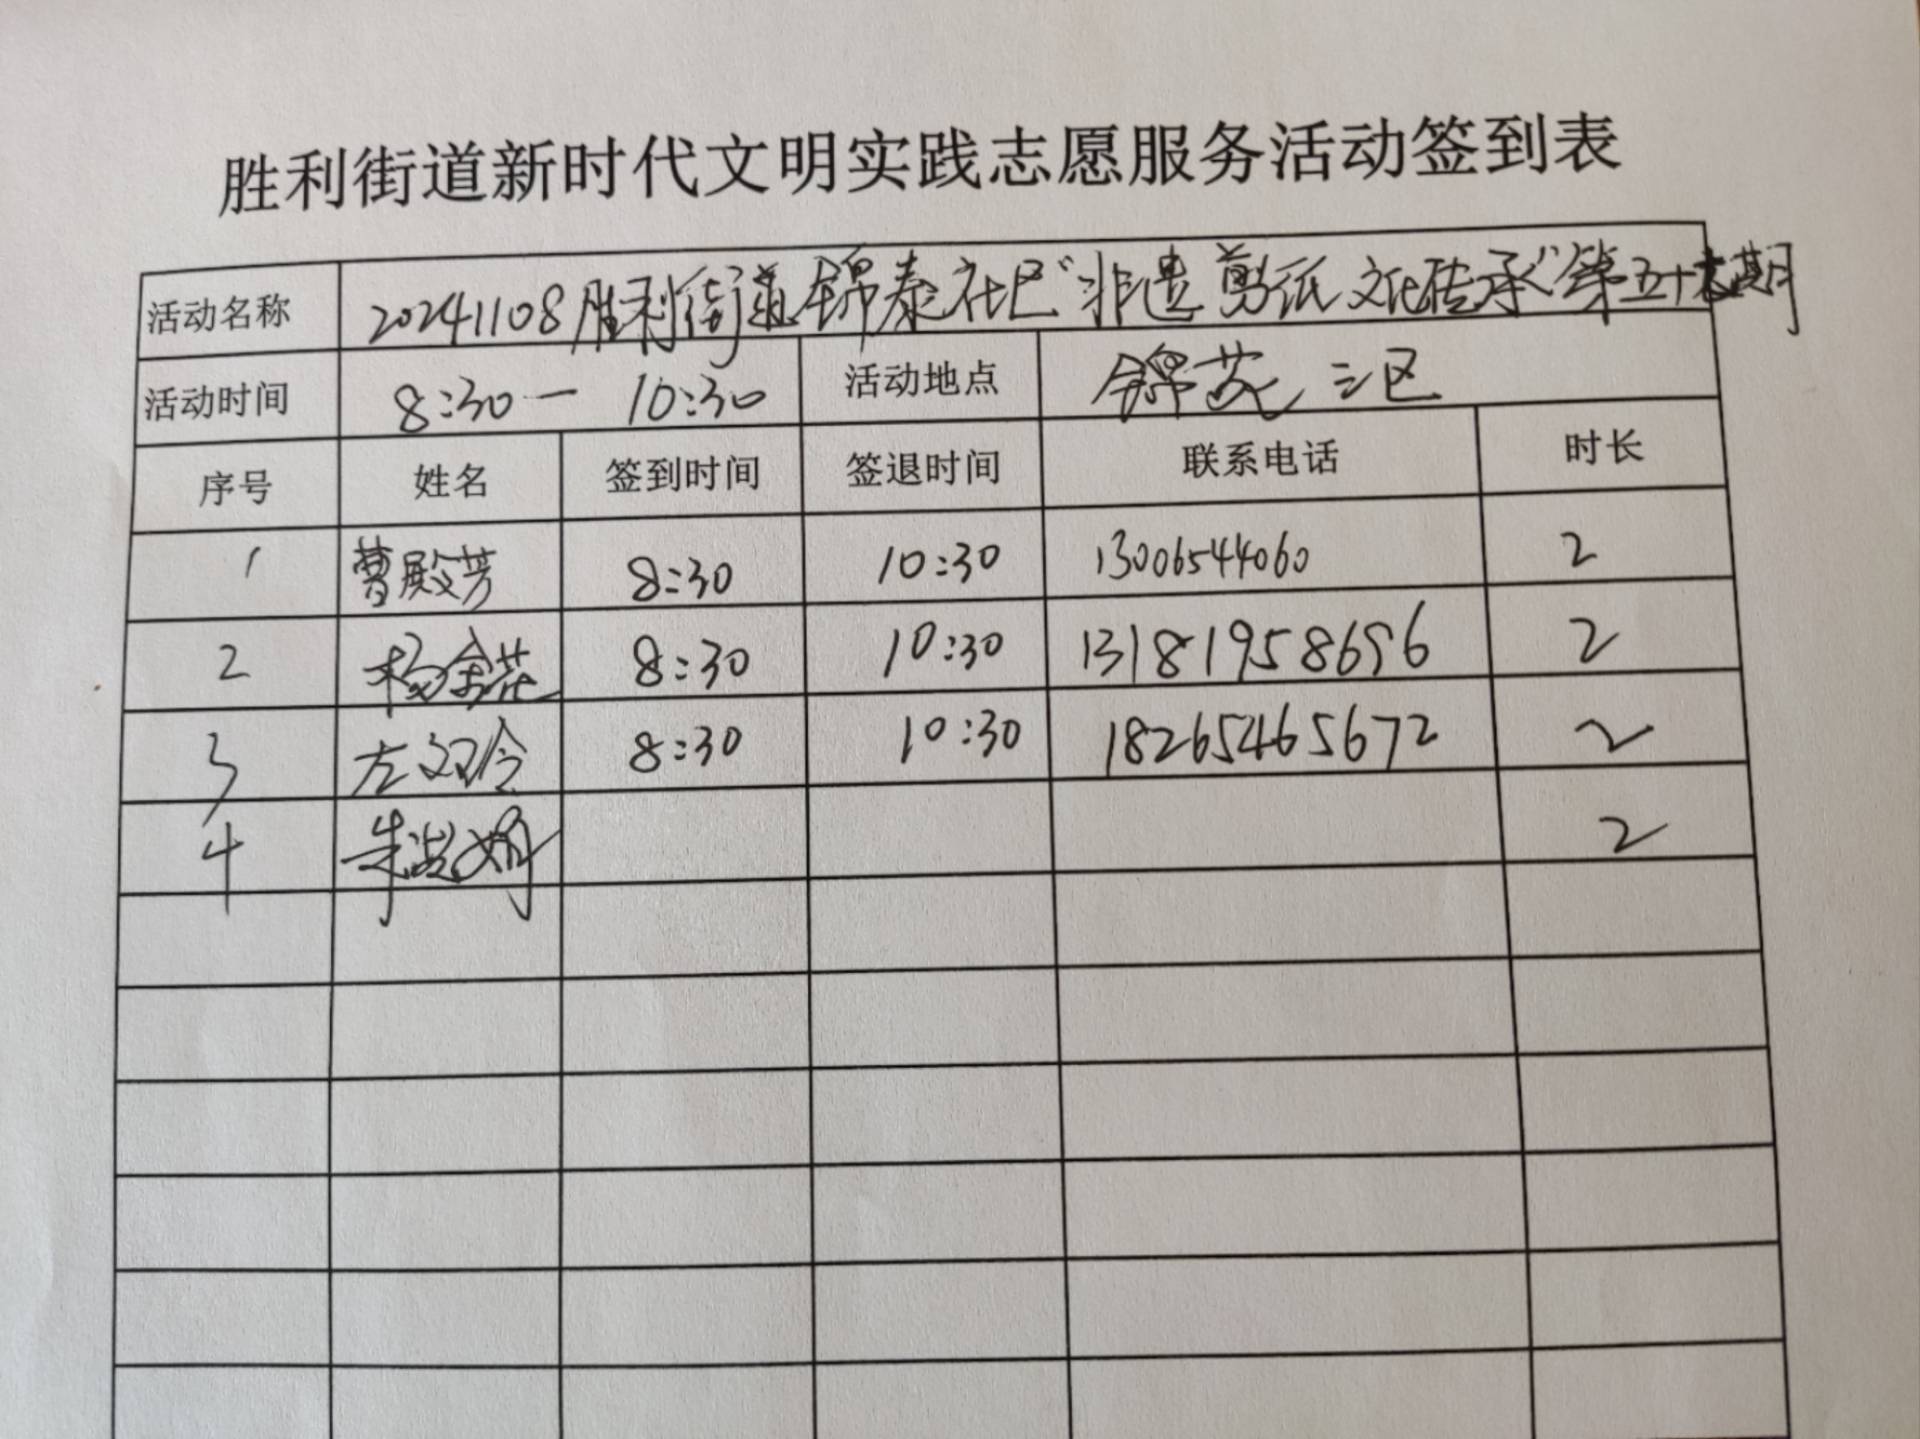 胜利街道新时代文明实践志愿服务活动签到表
活动名称 20241108胜利街道锦泰社区"非遗剪纸文化传承"第五十期
活动时间 8:30一 10:30 活动地点 锦苑三区
序号 姓名 签到时间 签退时间 联系电话 时长
1 曹殿芳 8:30 10:30 13006544060 2
2 杨金花 8:30 10:30 13181958696 2
3 左双令 8:30 10:30 18265465672 2
4 朱 2